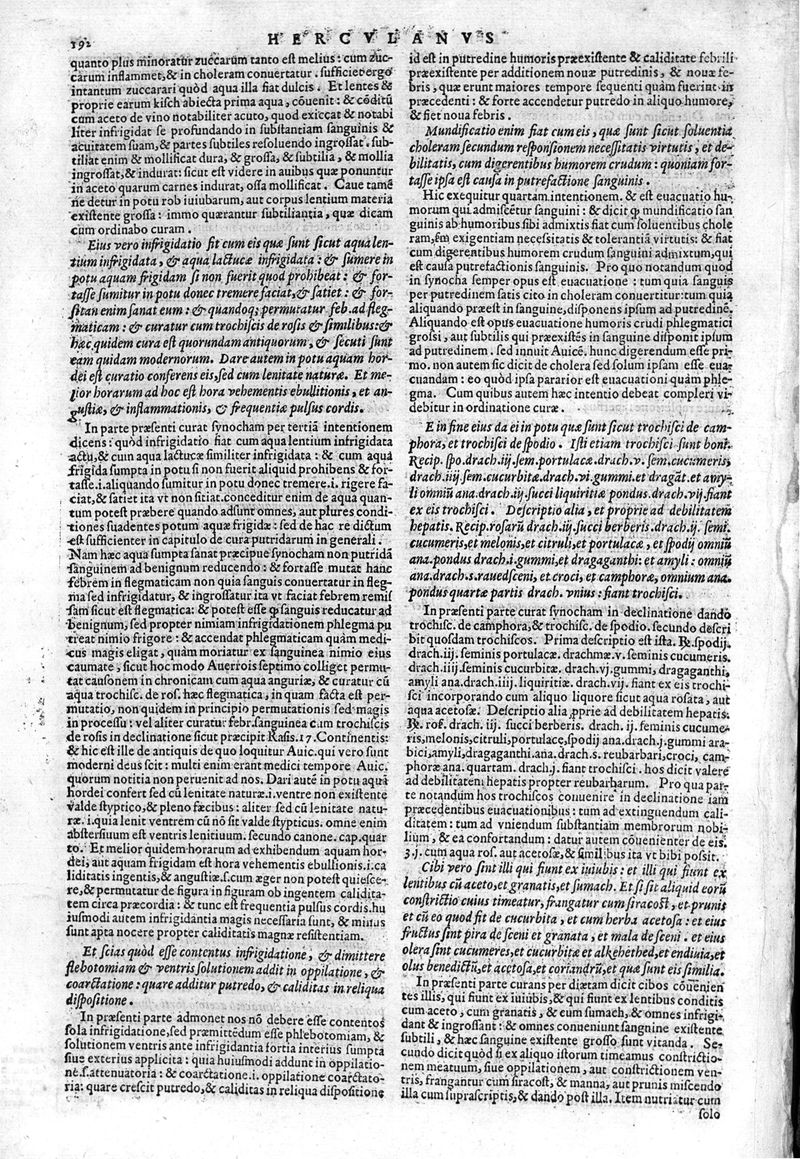 192
HERCVLANVS
quanto plus minoratur zuccarum tanto est melius: cum zuc-
carum inflammet,& in choleram conuertatur. sufficit ergo
intantum zuccarari quòd aqua illa fiat dulcis. Et lentes &
proprie earum kisch abiecta prima aqua, cōuenit: & cōditū
cum aceto de vino notabiliter acuto, quod exiccat & notabi
liter infrigidat se profundando in substantiam sanguinis &
acuitatem suam,& partes subtiles resoluendo ingrossat. sub-
tiliat enim & mollificat dura, & grossa, & subtilia, & mollia
ingrossat,& indurat: sicut est videre in auibus quæ ponuntur
in aceto quarum carnes indurat, ossa mollificat. Caue tamē
ne detur in potu rob iuiubarum, aut corpus lentium materia
existente grossa: immo quærantur subtiliantia, quæ dicam
cum ordinabo curam.
Eius vero infrigidatio fit cum eis quæ sunt sicut aqua len-
tium infrigidata, & aqua lactucæ infrigidata: & sumere in
potu aquam frigidam si non fuerit quod prohibeat: & for-
tasse sumitur in potu donec tremere faciat,& satiet: & for-
sitan enim sanat eum: & quandoq; permutatur feb.ad fleg-
maticam: & curatur cum trochiscis de rosis & similibus:&
hæc quidem cura est quorundam antiquorum, & secuti sunt
eam quidam modernorum. Dare autem in potu aquam hor-
dei est curatio conferens eis,sed cum lenitate naturæ. Et me-
lior horarum ad hoc est hora vehementis ebullitionis, et an-
gustiæ, & inflammationis, & frequentiæ pulsus cordis.
In parte præsenti curat synocham per tertiā intentionem
dicens: quòd infrigidatio fiat cum aqua lentium infrigidata
actu,& cum aqua lactucæ similiter infrigidata: & cum aqua
frigida sumpta in potu si non fuerit aliquid prohibens & for-
tasse.i.aliquando sumitur in potu donec tremere.i. rigere fa-
ciat,& satiet ita vt non sitiat.conceditur enim de aqua quan-
tum potest præbere quando adsunt omnes, aut plures condi-
tiones suadentes potum aquæ frigidæ: sed de hac re dictum
est sufficienter in capitulo de cura putridarum in generali.
Nam hæc aqua sumpta sanat præcipue synocham non putridā
sanguinem ad benignum reducendo: & fortasse mutat hanc
febrem in flegmaticam non quia sanguis conuertatur in fleg
ma sed infrigidatur, & ingrossatur ita vt faciat febrem remis
sam sicut est flegmatica: & potest esse ꝙ sanguis reducatur ad
benignum, sed propter nimiam infrigidationem phlegma pu
treat nimio frigore: & accendat phlegmaticam quàm medi-
cus magis eligat, quàm moriatur ex sanguinea nimio eius
caumate, sicut hoc modo Auerrois septimo colliget permu-
tat causonem in chronicam cum aqua anguriæ, & curatur cū
aqua trochisc. de ros. hæc flegmatica, in quam facta est per-
mutatio, non quidem in principio permutationis sed magis
in processu: vel aliter curatur febr.sanguinea cum trochiscis
de rosis in declinatione sicut præcipit Rasis.17.Continentis:
& hic est ille de antiquis de quo loquitur Auic. qui vero sunt
moderni deus scit: multi enim erant medici tempore Auic.
quorum notitia non peruenit ad nos. Dari autē in potu aquā
hordei confert sed cū lenitate naturæ.i.ventre non existente
valde styptico,& pleno fæcibus: aliter sed cū lenitate natu-
ræ.i.quia lenit ventrem cū nō sit valde stypticus. omne enim
abstersiuum est ventris lenitiuum. secundo canone. cap.quar
to. Et melior quidem horarum ad exhibendum aquam hor-
dei, aut aquam frigidam est hora vehementis ebullionis.i.ca
liditatis ingentis,& angustiæ.s.cum æger non potest quiesce-
re,& permutatur de figura in figuram ob ingentem calidita-
tem circa præcordia: & tunc est frequentia pulsus cordis.hu
iusmodi autem infrigidantia magis necessaria sunt, & minus
sunt apta nocere propter caliditatis magnæ resistentiam.
Et scias quòd esse contentus infrigidatione, & dimittere
flebotomiam & ventris solutionem addit in oppilatione, &
coarctatione: quare additur putredo,& caliditas in reliqua
dispositione.
In præsenti parte admonet nos nō debere esse contentos
sola infrigidatione,sed præmittēdum esse phlebotomiam, &
solutionem ventris ante infrigidantia fortia interius sumpta
siue exterius applicita: quia huiusmodi addunt in oppilatio-
ne.s.attenuatoria: & coarctatione.i. oppilatione coarctato-
ria: quare crescit putredo,& caliditas in reliqua dispositione
id est in putredine humoris præexistente & caliditate febrili
præexistente per additionem nouæ putredinis, & nouæ fe-
bris, quæ erunt maiores tempore sequenti quàm fuerint in
præcedenti: & forte accendetur putredo in aliquo humore,
& fiet noua febris.
Mundificatio enim fiat cum eis, quæ sunt sicut soluentia
choleram secundum responsionem necessitatis virtutis, et de-
bilitatis, cum digerentibus humorem crudum: quoniam for-
tasse ipsa est causa in putrefactione sanguinis.
Hic exequitur quartam intentionem. & est euacuatio hu-
morum qui admiscētur sanguini: & dicit ꝙ mundificatio san
guinis ab humoribus sibi admixtis fiat cum soluentibus chole
ram,sm exigentiam necessitatis & tolerantiā virtutis: & fiat
cum digerentibus humorem crudum sanguini admixtum,qui
est causa putrefactionis sanguinis. Pro quo notandum quod
in synocha semper opus est euacuatione: tum quia sanguis
per putredinem satis cito in choleram conuertitur:tum quia
aliquando præest in sanguine,disponens ipsum ad putredinē.
Aliquando est opus euacuatione humoris crudi phlegmatici
grossi, aut subtilis qui præexistēs in sanguine disponit ipsum
ad putredinem. sed innuit Auicē. hunc digerendum esse pri-
mo. non autem sic dicit de cholera sed solum ipsam esse eua-
cuandam: eo quòd ipsa paratior est euacuationi quàm phle-
gma. Cum quibus autem hæc intentio debeat compleri vi-
debitur in ordinatione curæ.
E in fine eius da ei in potu quæ sunt sicut trochisci de cam-
phora, et trochisci de spodio. Isti etiam trochisci sunt boni.
Recip. spo.drach.iij.sem.portulacæ.drach.v. sem.cucumeris,
drach.iiij.sem.cucurbitæ.drach.vi.gummi.et dragāt.et amy-
li omniū ana.drach.ij.succi liquiritiæ pondus.drach.vij.fiant
ex eis trochisci. Descriptio alia, et proprie ad debilitatem
hepatis. Recip.rosarū drach.iij.succi berberis.drach.ij. semi.
cucumeris,et melonis,et citruli,et portulacæ, et spodij omniū
ana.pondus drach.i.gummi,et dragaganthi: et amyli: omniū
ana.drach.s.rauedsceni, et croci, et camphoræ, omnium ana.
pondus quartæ partis drach. vnius: fiant trochisci.
In præsenti parte curat synocham in declinatione dando
trochisc. de camphora,& trochisc. de spodio. secundo descri
bit quosdam trochiscos. Prima descriptio est ista. ℞.spodij.
drach.iij.seminis portulacæ. drachmæ.v. seminis cucumeris.
drach.iiij.seminis cucurbitæ. drach.vj.gummi, dragaganthi,
amyli ana.drach.iiij. liquiritiæ. drach.vij. fiant ex eis trochi-
sci incorporando cum aliquo liquore sicut aqua rosata, aut
aqua acetosæ. Descriptio alia ꝓprie ad debilitatem hepatis.
℞. ros. drach. iij. succi berberis. drach. ij. seminis cucume-
ris,melonis,citruli,portulacę,spodij ana.drach.j.gummi ara-
bici,amyli,dragaganthi.ana.drach.s.reubarbari,croci, cam-
phoræ ana.quartam.drach.j.fiant trochisci. hos dicit valere
ad debilitatem hepatis propter reubarbarum. Pro qua par-
te notandum hos trochiscos conuenire in declinatione iam
præcedentibus euacuationibus: tum ad extinguendum cali-
ditatem: tum ad vniendum substantiam membrorum nobi-
lium, & ea confortandum: datur autem cōuenienter de eis.
ʒ.j. cum aqua ros. aut acetosæ,& similibus ita vt bibi possit.
Cibi vero sint illi qui fiunt ex iuiubis: et illi qui fiunt ex
lentibus cū aceto,et granatis,et sumach. Et si sit aliquid eorū
cōstrictio cuius timeatur, frangatur cum siracost, et prunis
et cū eo quod fit de cucurbita, et cum herba acetosa: et eius
fructus sint pira de sceni et granata, et mala de sceni. et eius
olera sint cucumeres,et cucurbitæ et alkehethed,et endiuia,et
olus benedictū,et acetosa,et coriandrū,et quæ sunt eis similia.
In præsenti parte curans per diætam dicit cibos cōuenien
tes illis, qui fiunt ex iuiubis,& qui fiunt ex lentibus conditis
cum aceto, cum granatis, & cum sumach, & omnes infrigi-
dant & ingrossant: & omnes conueniunt sanguine existente
subtili, & hæc sanguine existente grosso sunt vitanda. Se-
cundo dicit quòd si ex aliquo istorum timeamus constrictio-
nem meatuum, siue oppilationem, aut constrictionem ven-
tris, frangantur cum siracost, & manna, aut prunis miscendo
illa cum suprascriptis,& dando post illa. Item nutriatur cum
solo